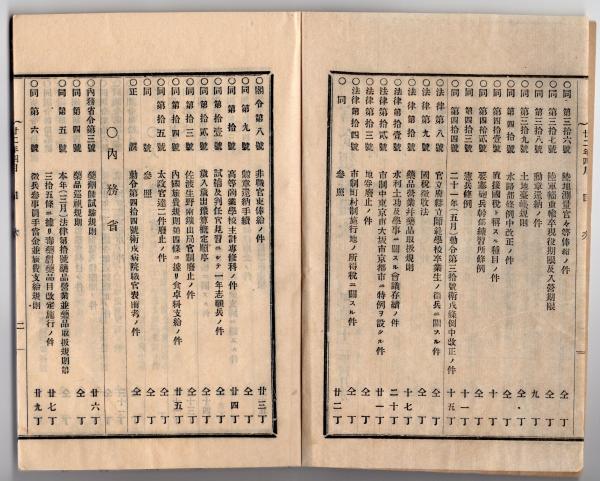 ○同第三拾六號 陸地測量官々等俸給ノ件 仝丁
○同第三拾七號 陸軍輜重輸卒現役期限及入營期限 仝丁
○同第三拾八號 勳章還納ノ件 九丁
○同第三拾九號 土地臺帳規則 仝丁
○同第四拾號 水路部條例中改正ノ件 仝丁
○同第四拾貳號 直接國稅ト稱スル種目ノ件 仝丁
○同第四拾三號 要塞砲兵幹部練習所條例 仝丁
○同第四拾四號 憲兵條例 十一丁
二十一年(五月)勅令第三拾號衛戍條例中改正ノ件 十五丁
○法律第八號 官立府縣立師範學校卒業生ノ徵兵ニ關スル件 仝丁
○法律第九號 國稅徵收法 仝丁
○法律第拾號 藥品營業并藥品取扱規則 十七丁
○法律第拾壹號 水利土功及學事ニ關スル會議存續ノ件 二十丁
○法律第拾貳號 市制中東京市大坂市京都市ニ特例ヲ設クルノ件 廿一丁
○法律第拾三號 地券廢止ノ件 仝丁
○同 市制町村制施行地ノ所得稅ニ關スル件 仝丁
○同 參照 廿二丁
○閣令第八號 非職官吏俸給ノ件 廿三丁
○同第九號 勳章還納手續 仝丁
○同第拾號 高等商業學校主計專修科ノ件 廿四丁
○同第拾壹號 試補及判任官見習ニシテ一年志願兵ノ件 仝丁
○同第拾貳號 歲入歲出豫算概定順序 仝丁
○同第拾三號 佐渡生野兩鑛山局官制廢止ノ件 仝丁
○同第拾四號 內國旅費規則第四條ニ據リ食卓料支給ノ件 廿五丁
○同第拾五號 太政官達二件廢止ノ件 仝丁
○同 參照 仝丁
○正誤 勅令第四拾四號衛戍病院職官表備考ノ件 仝丁
○內務省
○內務省令第三號 藥劑師試驗規則 廿六丁
○同第四號 藥品巡視規則 仝丁
○同第五號 本年(三月)法律第拾號藥品營業並藥品取扱規則第
三拾五條ニ據リ毒藥劇藥品目改定施行ノ件 廿七丁
○同第六號 徵兵參事員手當金並旅費支給規則 廿九丁
二